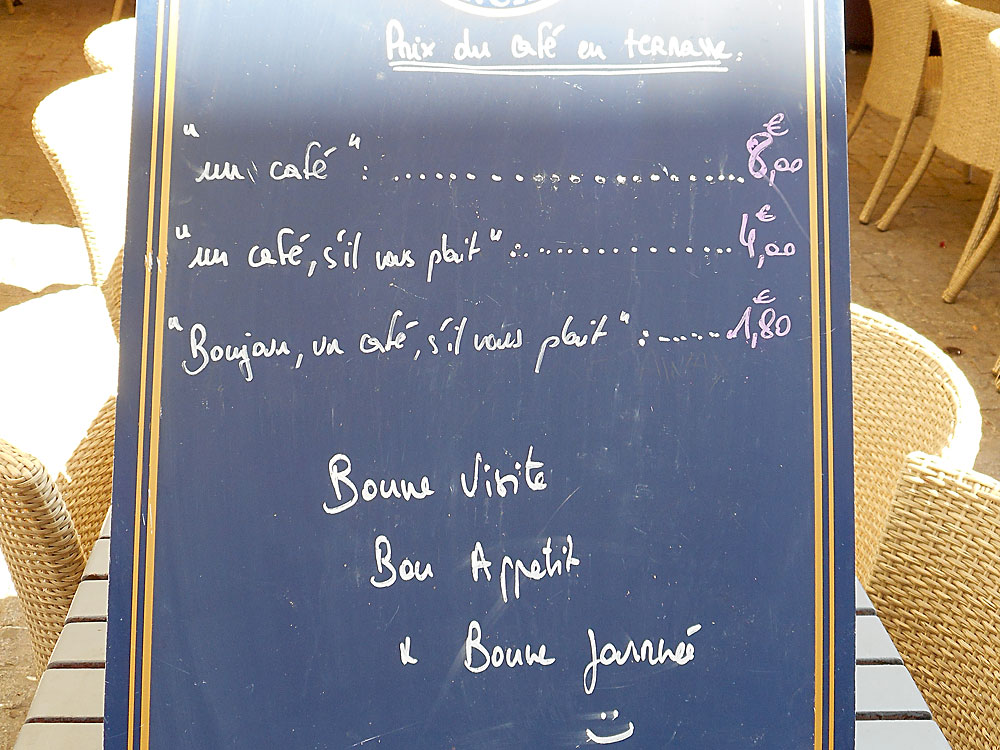 Prix du café en terrasse :
"un café" : .......................... 8,00 €
"un café, s'il vous plait" : .................. 4,00 €
"Bonjour, un café, s'il vous plait" : ....... 1,80 €
Bonne Visite
Bon Appetit
& Bonne Journée
:)